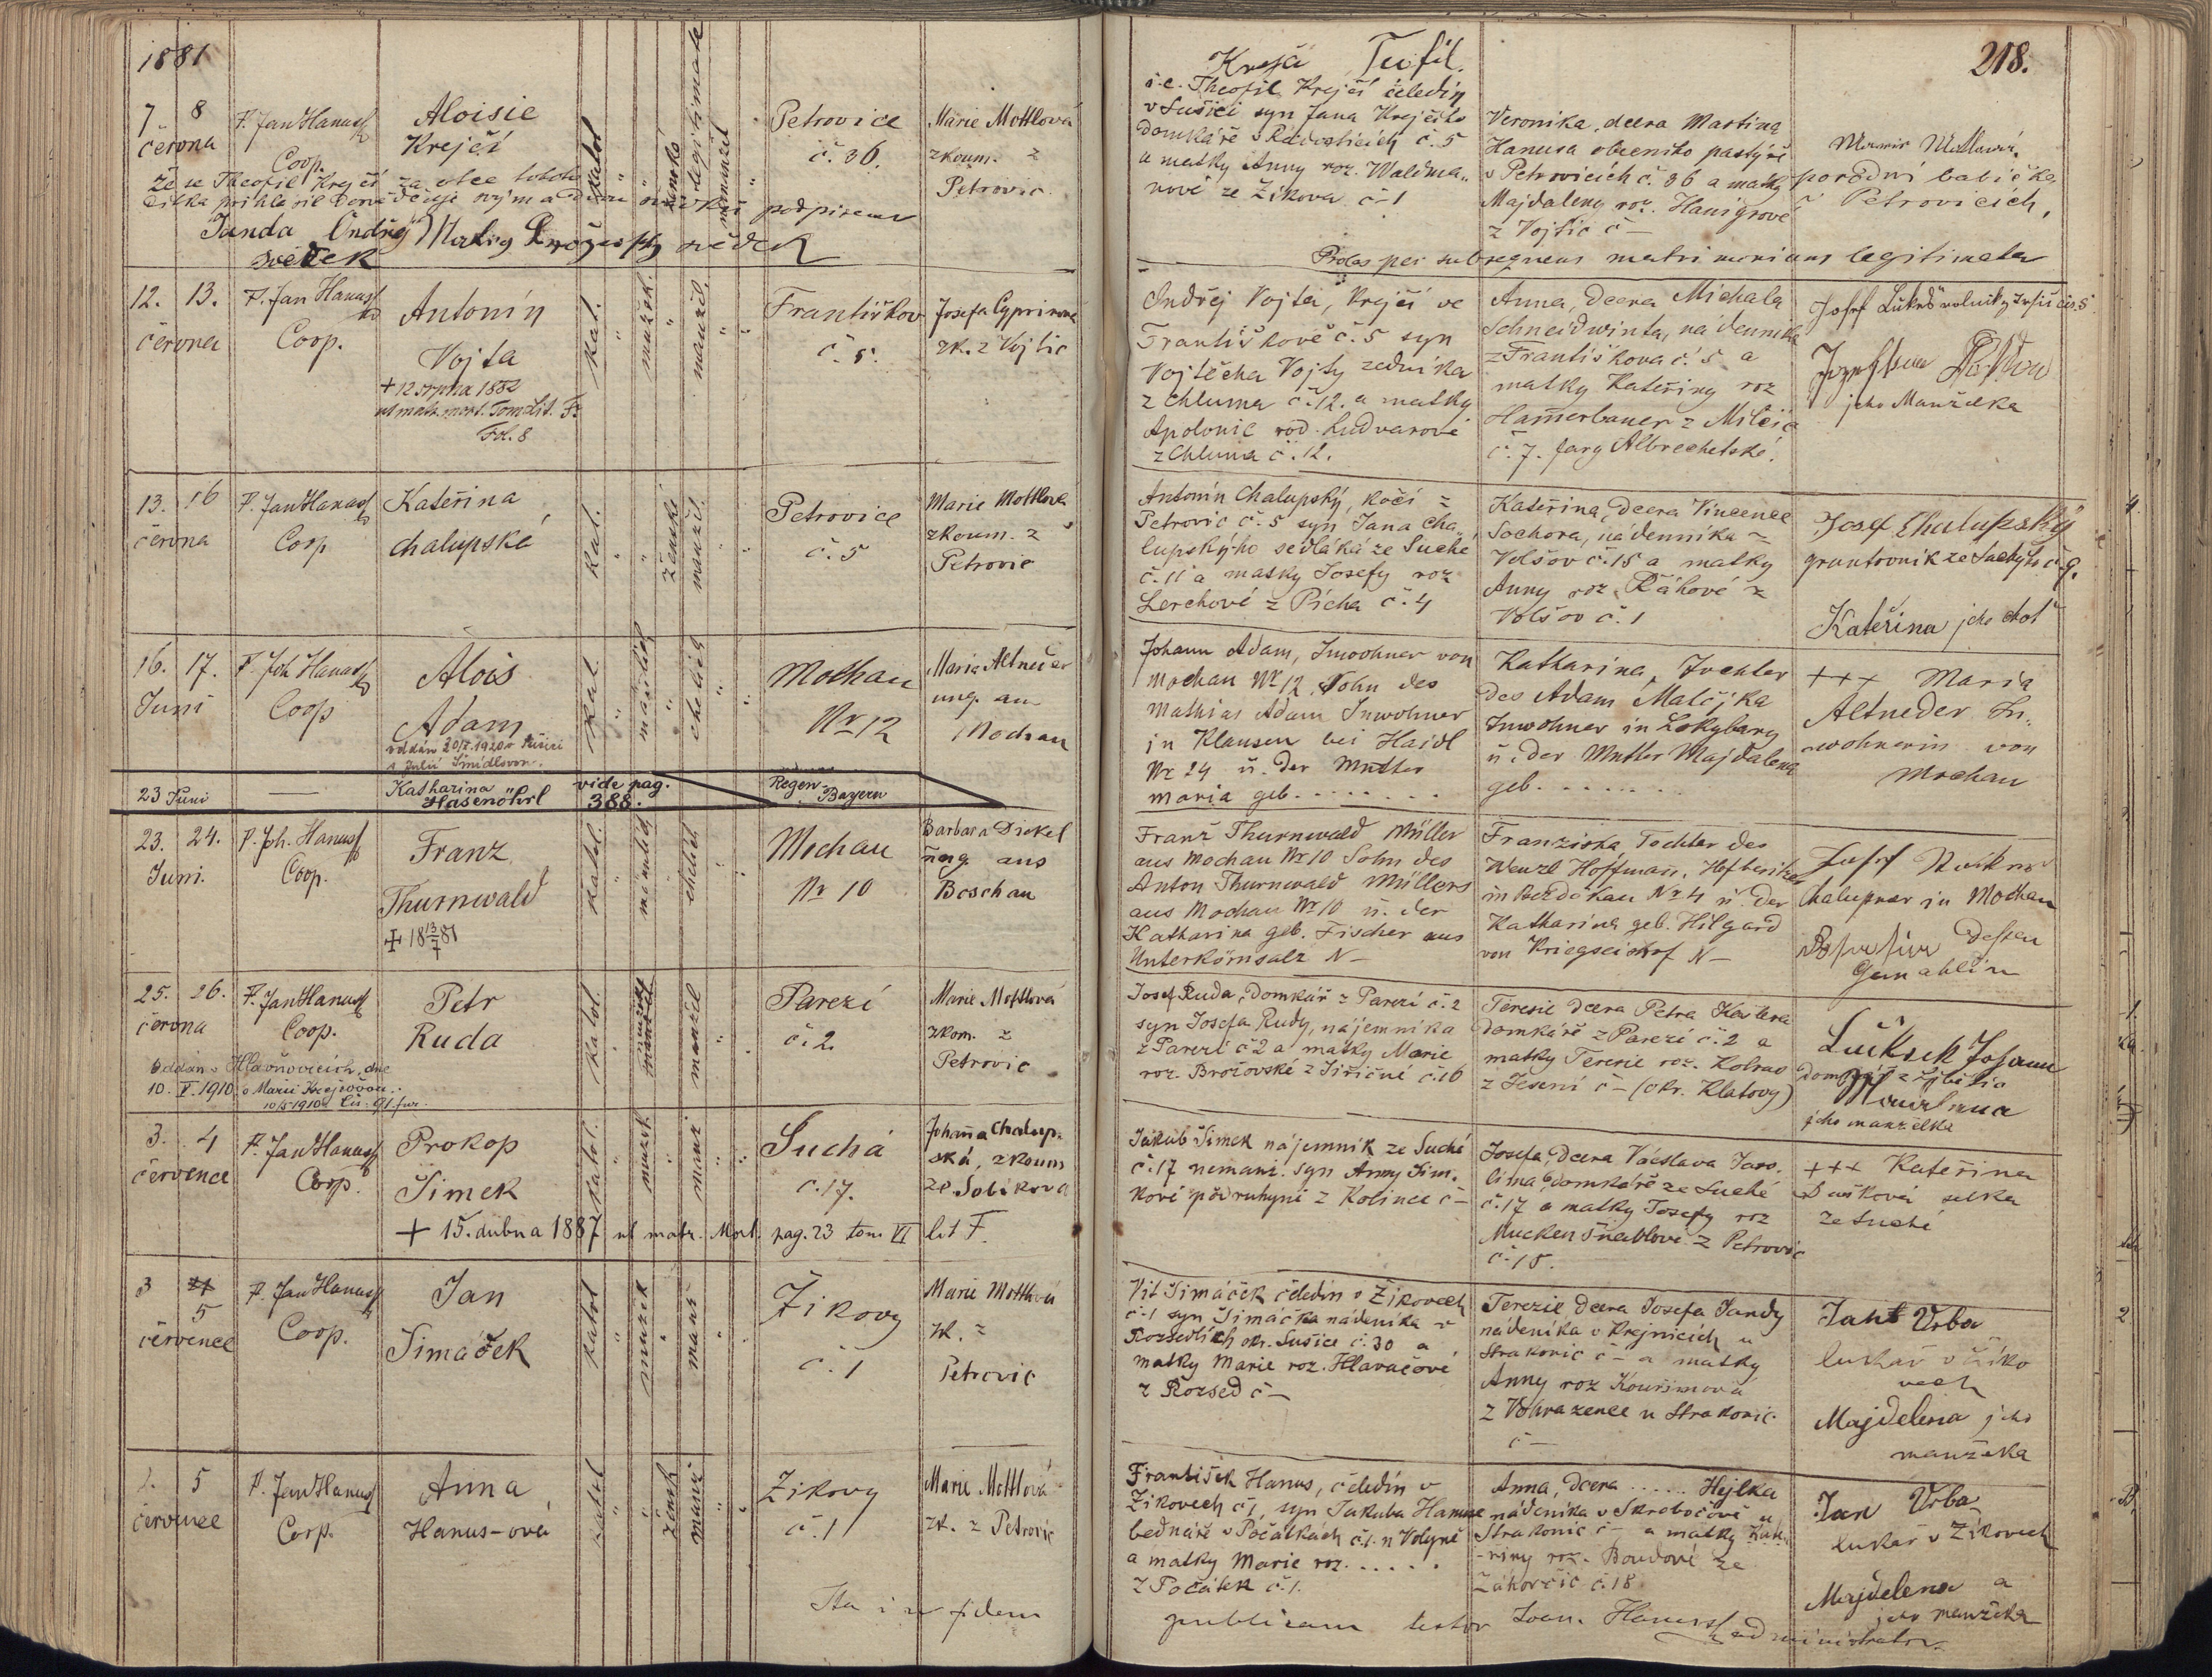 1881
7 8
června
P. Jan Hanuss
Coop.
Aloisie
Krejčí
Petrovice
č. 36.
Marie Mottlová
zkouš. z
Petrovic
že se Theofil Krejčí za otce tohoto
Janda Ondřej
svědek
svědek
Krejčí Teofil.
i.e. Theofil Krejčí čeledín
v Sušici syn Jana Krejčího
a matky Anny roz. Waldma„
nové ze Žikova č. 1
Veronika, dcera Martina
Hanusa obecního pastýře
v Petrovicích č. 36 a matky
Majdaleny roz.
z Vojtic č —
porodní babička
v Petrovicích,
Proles per subsequens matrimonium legitimata
218.
12. 13.
června
P. Jan Hanuss
Coop.
Antonín
Vojta
+ 12 srpna 1882
ut matr. mort. Tom. Lit. F.
Fol. 8
kat.
mužsk.
manžel.
Františkov
č. 5.
Josefa
zk. z Vojtic
Ondřej Vojta, krejčí ve
Františkově č. 5 syn
Vojtěcha Vojty zedníka
z Chluma č. 12. a matky
Apolonie rod. Ludvarové
z Chluma č. 12.
Anna, dcera Michala
Schneidwinta, nádenníka
z Františkova č. 5 a
matky Kateřiny roz
Hamerbauer z Milčic
č. 7. fary Albrechetské.
jeho Manželka
13. 16
června
P. Jan Hanuss
Coop
Kateřina
Chalupská
kat.
ženské
manžel.
Petrovice
č. 5
Marie Mottlová
zkouš. z
Petrovic
Antonín Chalupský, kočí z
Petrovic č. 5 syn Jana Cha„
lupského sedláka ze Suché
č. 11 a matky Josefy roz
Lerchové z Pícha č. 4
Kateřina, dcera Vincence
Sochora, nádenníka z
Volšov č. 15 a matky
Anny roz. Řáhové z
Volšov č. 1
Josef Chalupský
gruntovník ze Suchýho č. 9.
Kateřina jeho choť
16. 17.
Juni
P. Joh Hanuss
Coop
Alois
Adam
oddán 1920 v Sušici
s Julií Šmídlovou.
kat.
männlich
ehelich
Mochau
Nr 12
Maria Altneder
ung. aus
Mochau
Johann Adam, Inwohner von
Mochau Nr 12, Sohn des
Mathias Adam Inwohner
in Klausen bei Haidl
Nr 24 u. der Mutter
Maria geb. . . . . . . .
Katharina, Tochter
des Adam Matějka
Inwohner in Lokybary
u. der Mutter Majdalena
geb. . . . . . . .
+++ Maria
Altneder In„
wohnerin von
Mochau
23 Juni
—
Katharina
Hasenöhrl
vide pag.
388.
Regen-
Bayern
23. 24.
Juni.
P. Joh. Hanuss
Coop.
Franz
Thurnwald
+ 18 13/7 81
kathol.
männlich
ehelich
Mochau
Nr 10
Barbara Dickel
ung. aus
Boschau
Franz Thurnwald Müller
aus Mochau Nr 10 Sohn des
Anton Thurnwald Müllers
aus Mochau Nr 10 u. der
Katharina geb. Fischer aus
Unterkörnsalz N —
Franziska Tochter des
Wenzl Hoffmann, Hofbesitzer
in Bezděkau Nr 4 u. der
Katharina geb. Hilgard
von N —
Chalupner in Mochau
dessen
Gemahlin
25. 26.
června
P. Jan Hanuss
Coop.
Petr
Ruda
Oddán v Hlavňovicích, dne
10. V. 1910 s Marií Krejčovou.
kathol.
manžel
Parezí
č. 2.
Marie Mottlová
zkom. z
Petrovic
Josef Ruda, domkář z Parezí č. 2
syn Josefa Rudy, nájemníka
z Parezí č 2 a matky Marie
roz. Brožovské z Jiřičné č. 16
Teresie dcera Petra Kaštera
domkáře z Parezí č. 2 a
matky Teresie roz.
z Jesení č — (okr. Klatovy)
Johann
jeho manželka
3. 4
července
P. Jan Hanuss
Coop.
Prokop
Šimek
+ 15. dubna 1887 ut matr. Mort. pag. 23 tom VI lit F.
kathol.
mužsk.
manž
Suchá
č. 17.
Johanna Chalup„
ská, zkouš
ze Sobikova
Jakub Šimek nájemník ze Suché
č. 17 nemanž. syn Anny Šim„
kové podruhyně z Kolince č —
Josefa, dcera Václava Jaro„
lína, domkáře ze Suché
č. 17 a matky Josefy roz
Muckenšnablové z Petrovic
č. 15.
+++ Kateřina
selka
ze Suché
3 4
5
července
P. Jan Hanuss
Coop.
Jan
Šimáček
kathol
mužsk
manž
Žikovy
č. 1
Marie Mottlová
zk. z
Petrovic
Vít Šimáček čeledín v Žikovech
č. 1 syn Šimáčka nádeníka v
Rozsedlích okr. Sušice č. 30 a
matky Marie roz. Hlaváčové
z Rozsed č —
Terezie dcera Josefa Jandy
nádeníka v Krejnicích u
Strakonic č — a matky
Anny roz Kouřimová
z Vohrazenec u Strakonic
č —
Jan Vrba
luhař v Žiko
vech
Majdelena jeho
manželka
5
července
P. Jan Hanuss
Coop.
Anna
Hanus-ová
kathol
žensk
manž
Žikovy
č. 1
Marie Mottlová
zk. z Petrovic
František Hanus, čeledín v
Žikovech č. 1, syn Jakuba Hanuse
bednáře v Počátkách č. 1. u Volyně
a matky Marie roz. . . . . .
z Počátek č. 1.
Anna, dcera . . . . . . Hejlka
nádeníka v Skrobočově u
Strakonic č — a matky Kate
-řiny roz. Boudové ze
Zákorčic č. 18
Jan Vrba
luhař v Žikovech
Majdelena a
jeho manželka
Ita in fidem
publicam testor Joan. Hanuss administrator.